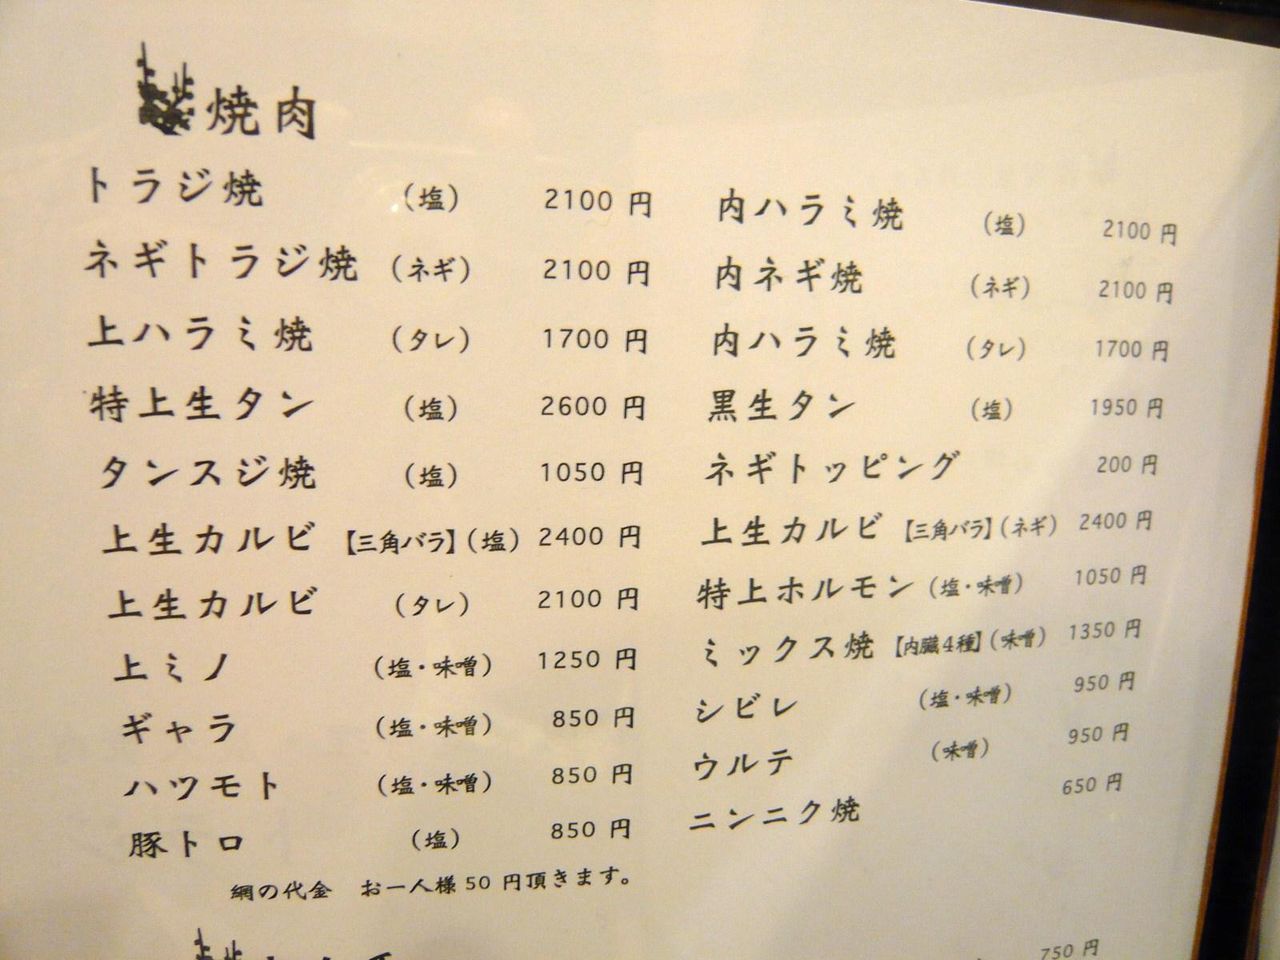 焼肉
トラジ焼 （塩） 2100 円
ネギトラジ焼 （ネギ） 2100 円
上ハラミ焼 （タレ） 1700 円
特上生タン （塩） 2600 円
タンスジ焼 （塩） 1050 円
上生カルビ 【三角バラ】（塩） 2400 円
上生カルビ （タレ） 2100 円
上ミノ （塩・味噌） 1250 円
ギャラ （塩・味噌） 850 円
ハツモト （塩・味噌） 850 円
豚トロ （塩） 850 円
網の代金 お一人様50 円頂きます。
内ハラミ焼 （塩） 2100 円
内ネギ焼 （ネギ） 2100 円
内ハラミ焼 （タレ） 1700 円
黒生タン （塩） 1950 円
ネギトッピング 200 円
上生カルビ 【三角バラ】（ネギ） 2400 円
特上ホルモン （塩・味噌） 1050 円
ミックス焼 【内臓４種】（味噌） 1350 円
シビレ （塩・味噌） 950 円
ウルテ （味噌） 950 円
ニンニク焼 650 円
750 円